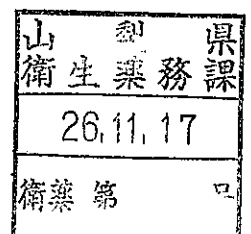 山梨県
衛生薬務課
26.11.17
衛薬第 号